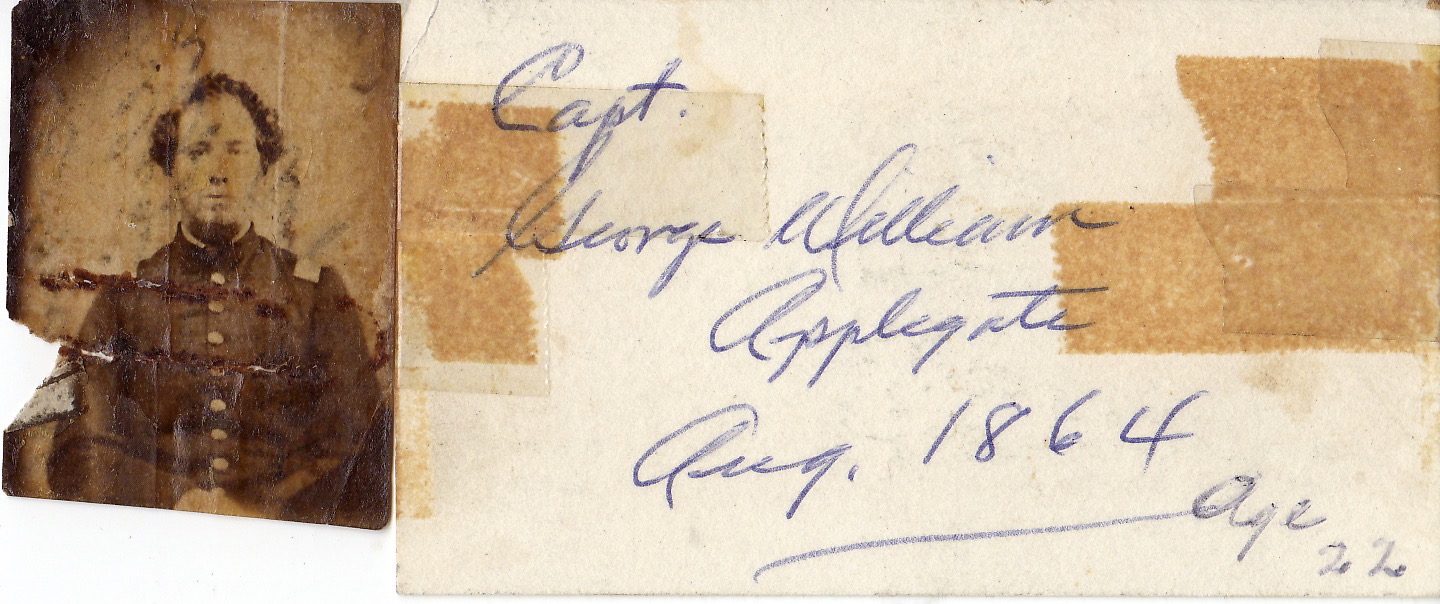 Capt.
George William
Applegate
Aug. 1864
Age
22